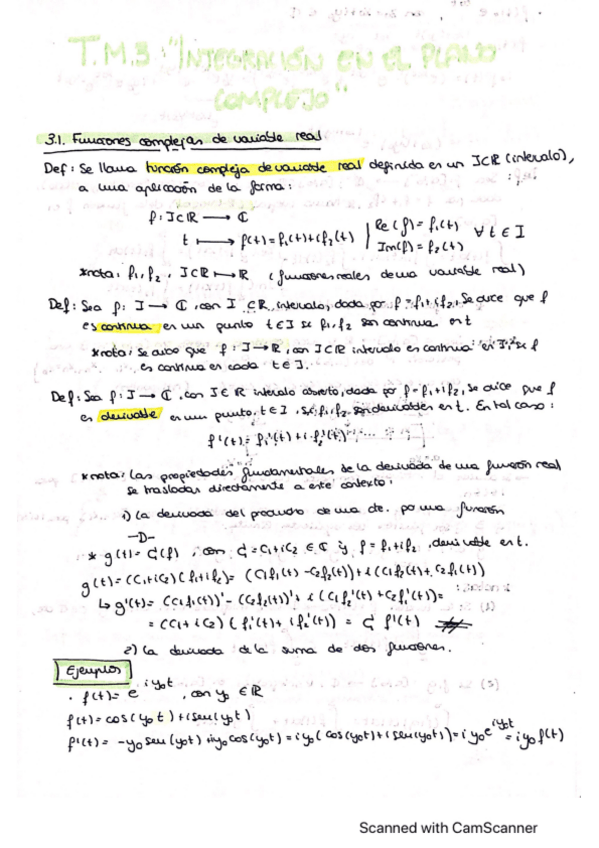 T.M.3: "INTEGRACIÓN EN EL PLANO
COMPLEJO"
3.1. Funciones complejas de variable real
Def: Se llama función compleja de variable real definida en un I⊂ℝ (intervalo),
a una aplicación de la forma:
f: I⊂ℝ ⟶ ℂ
t ⟼ f(t)=f₁(t)+if₂(t) | Re(f)=f₁(t) Im(f)=f₂(t) ∀t∈I
*nota: f₁, f₂, I⊂ℝ ⟼ ℝ (funciones reales de una variable real)
Def: Sea f: I ⟶ ℂ, con I ⊂ ℝ, intervalo, dada por f=f₁+if₂. Se dice que f
es continua en un punto t∈I si f₁, f₂ son continua en t
*nota: se dice que f: I⟶ℝ, con I⊂ℝ intervalo es continua en I, si f
es continua en cada t∈I.
Def: Sea f: I⟶ℂ, con I∈ℝ intervalo abierto, dada por f=f₁+if₂, se dice que f
es derivable en un punto, t∈I, si f₁, f₂ son derivables en t. En tal caso:
f'(t)= f₁'(t)+i·f₂'(t)
*nota: Las propiedades fundamentales de la derivada de una función real
se trasladan directamente a este contexto:
1) La derivada del producto de una cte. por una función
—D—
* g(t)= C(f), con C=C₁+iC₂ ∈ ℂ y f=f₁+if₂, derivable en t.
g(t)=(C₁+iC₂)(f₁+if₂)= (C₁f₁(t)-C₂f₂(t))+i(C₁f₂(t)+C₂f₁(t))
↳ g'(t)= (C₁f₁(t))'-(C₂f₂(t))'+i(C₁f₂'(t)+C₂f₁'(t))=
= (C₁+iC₂)(f₁'(t)+if₂'(t)) = C f'(t)
2) La derivada de la suma de dos funciones.
Ejemplos
· f(t)= e^{iy₀t}, con y₀ ∈ ℝ
f(t)=cos(y₀t)+isen(y₀t)
f'(t)= -y₀sen(y₀t)+iy₀cos(y₀t)=iy₀(cos(y₀t)+isen(y₀t))=iy₀e^{iy₀t}=iy₀f(t)
Scanned with CamScanner